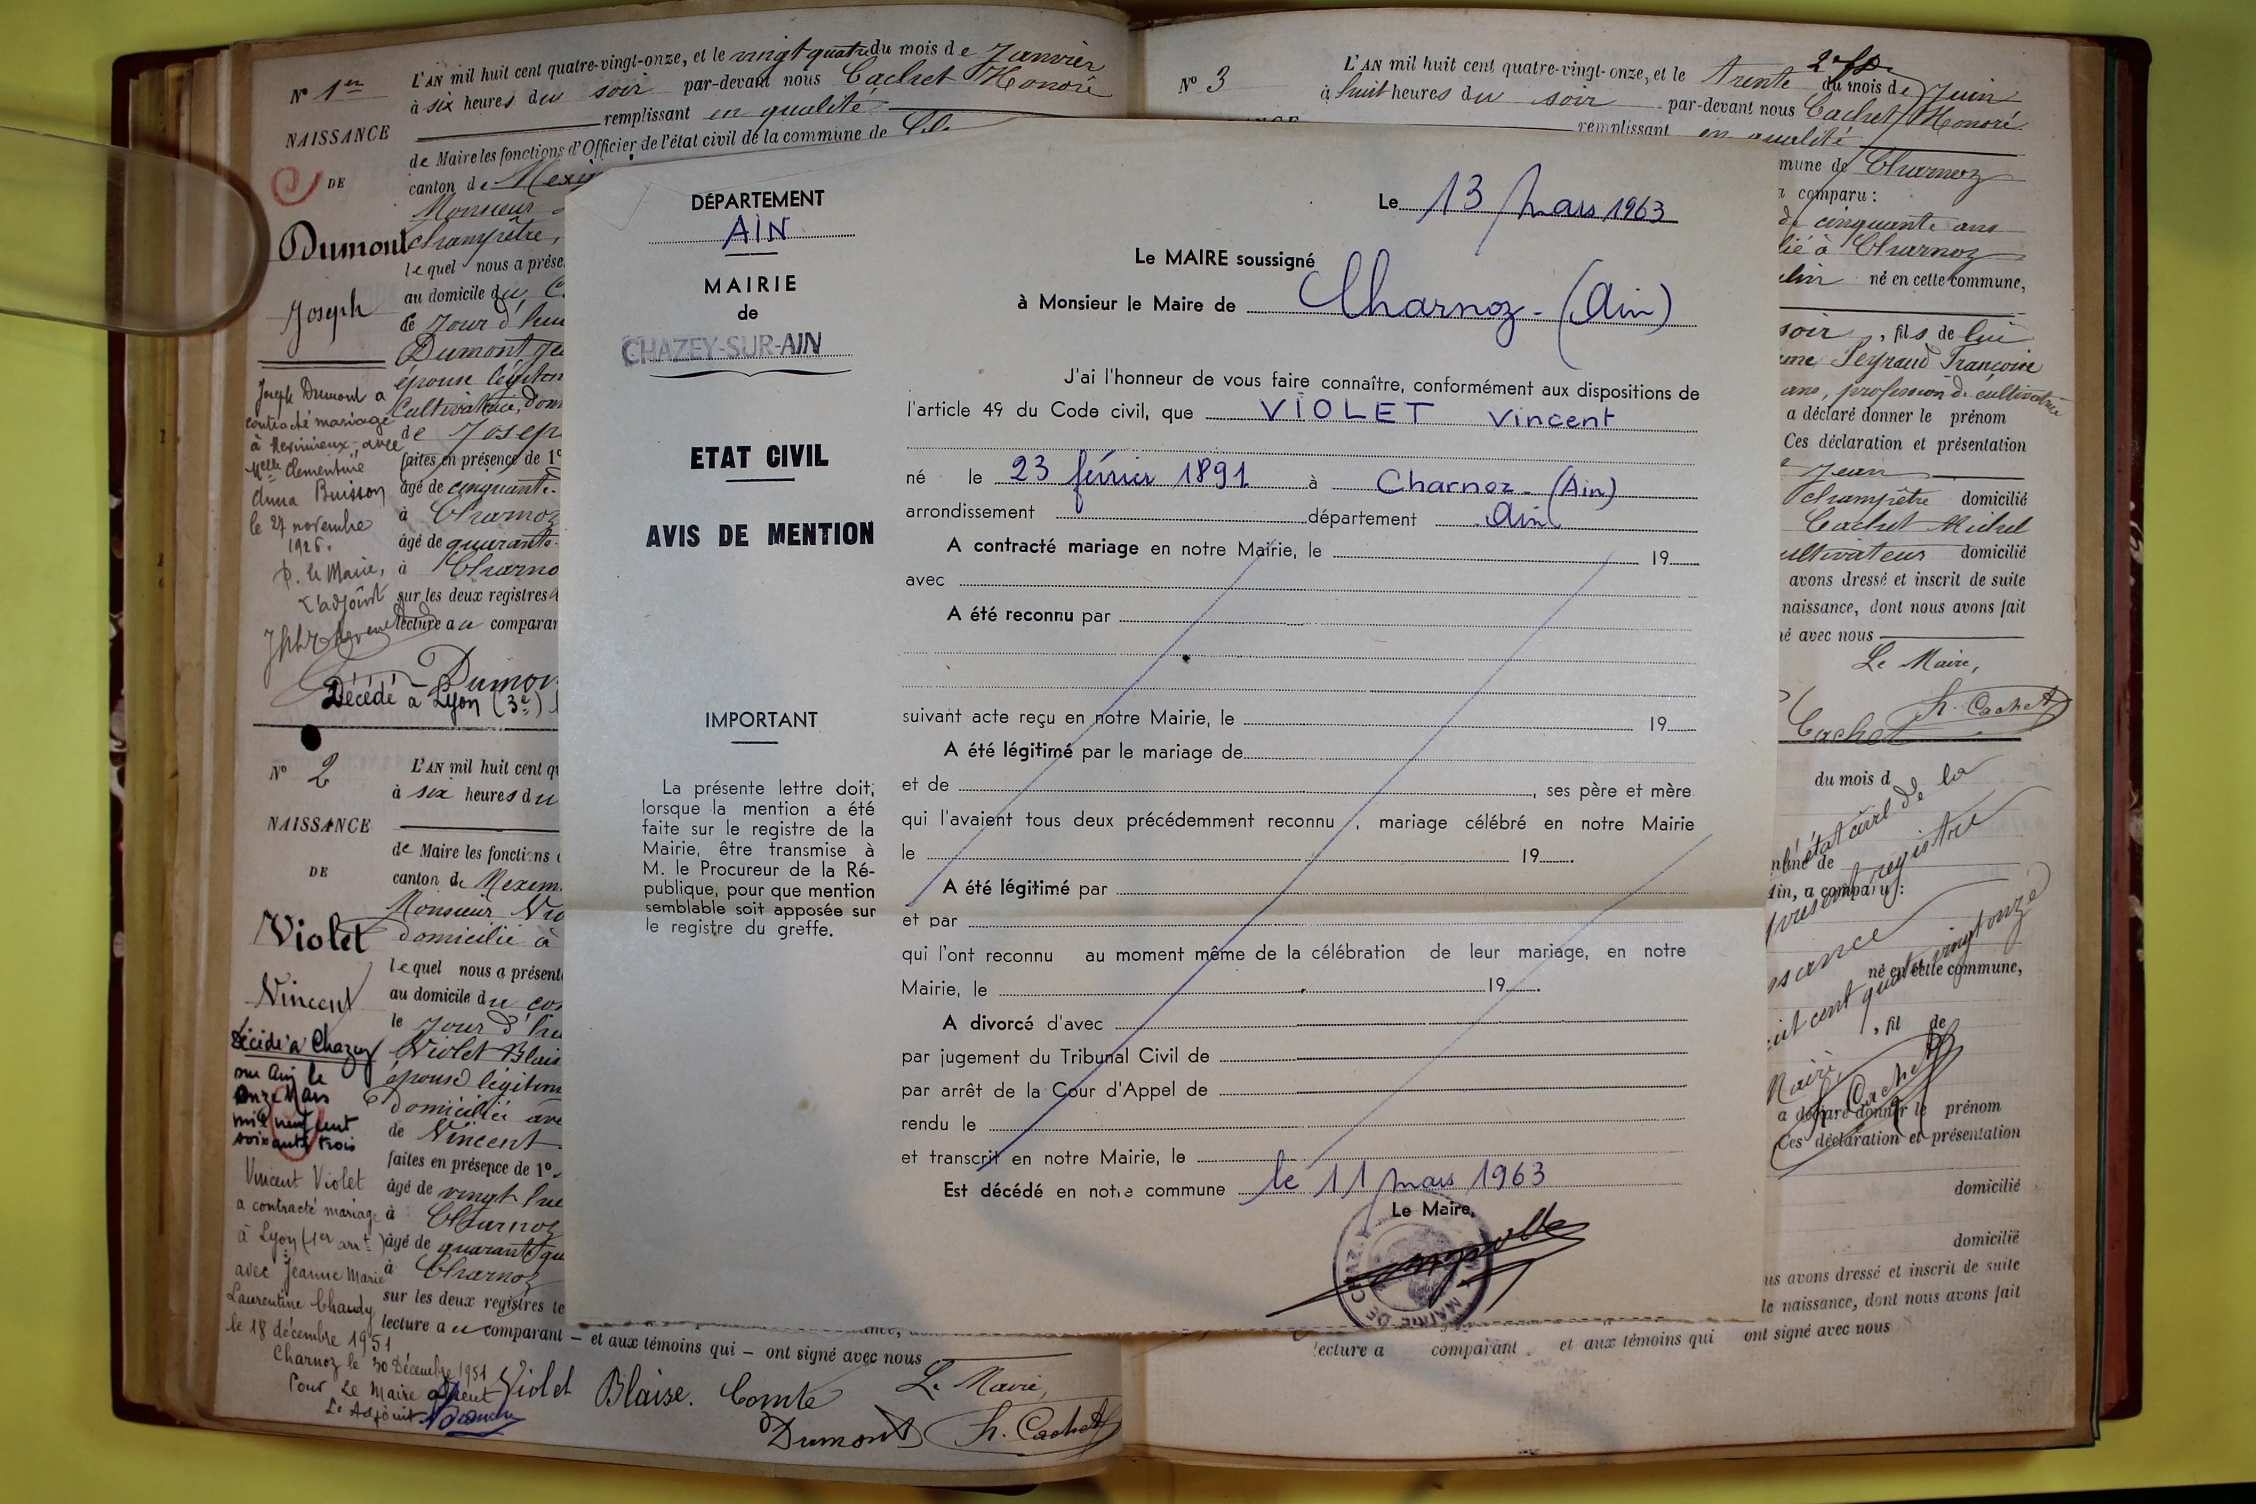 N° 1er
NAISSANCE
DE
Dumont
Joseph
Joseph Dumont a
contracté mariage
à Meximieux, avec
Melle Clémentine
Anna Buisson
le 27 novembre
1926.
P. le Maire,
L'adjoint
L'AN mil huit cent quatre-vingt-onze, et le vingt quatre du mois de Janvier
à six heures du soir par-devant nous Cachet Honoré
remplissant en qualité
de Maire les fonctions d'Officier de l'état civil de la commune de
canton de
Monsieur
champêtre,
lequel nous a prése
au domicile du
le jour d'hui
Dumont
épouse légitim
Cultivatrice, dom
de Joseph
faites en présence de 1°
âgé de cinquante-
à Charnoz
âgé de quarante-
à Charno
sur les deux registres
lecture au comparan
Dumon
Décédé à Lyon (3e)
N° 2
NAISSANCE
DE
Violet
Vincent
Décédé à Chazey
sur Ain le
onze Mars
mil neuf cent
soixante trois
Vincent Violet
a contracté mariage
à Lyon (1er arrt)
avec Jeanne Marie
Laurentine Chaudy
le 18 décembre 1951
Charnoz le 30 Décembre 1951
Pour Le Maire
Le Adjoint
L'AN mil huit cent q
à six heures du
de Maire les fonctions
canton de Mexim
Monsieur Vio
domicilié à
lequel nous a présent
au domicile du
le jour d'hu
Violet Blais
épouse légitim
domiciliée ave
de Vincent
faites en présence de 1°
âgé de vingt hu
à Charnoz
âgé de quarante
à Charnoz
sur les deux registres
lecture au comparant – et aux témoins qui – ont signé avec nous
Le Maire,
Violet Blaise. Comte
Dumont H. Cachet
DÉPARTEMENT
AIN
MAIRIE
de
CHAZEY-SUR-AIN
ETAT CIVIL
AVIS DE MENTION
IMPORTANT
La présente lettre doit,
lorsque la mention a été
faite sur le registre de la
Mairie, être transmise à
M. le Procureur de la Ré-
publique, pour que mention
semblable soit apposée sur
le registre du greffe.
Le 13 Mars 1963
Le MAIRE soussigné
à Monsieur le Maire de Charnoz - (Ain)
J'ai l'honneur de vous faire connaître, conformément aux dispositions de
l'article 49 du Code civil, que VIOLET Vincent
né le 23 février 1891 à Charnoz - (Ain)
arrondissement département Ain
A contracté mariage en notre Mairie, le 19
avec
A été reconnu par
suivant acte reçu en notre Mairie, le 19
A été légitimé par le mariage de
et de , ses père et mère
qui l'avaient tous deux précédemment reconnu , mariage célébré en notre Mairie
le 19 .
A été légitimé par
et par
qui l'ont reconnu au moment même de la célébration de leur mariage, en notre
Mairie, le 19 .
A divorcé d'avec
par jugement du Tribunal Civil de
par arrêt de la Cour d'Appel de
rendu le
et transcrit en notre Mairie, le
Est décédé en notre commune le 11 mars 1963
Le Maire,
MAIRIE DE CHAZEY
N° 3
L'AN mil huit cent quatre-vingt-onze, et le trente du mois de Juin
à huit heures du soir par-devant nous Cachet Honoré
remplissant en qualité
mune de Charnoz
a comparu :
cinquante ans
lié à Charnoz
né en cette commune,
soir , fils de lui
Peyraud Françoise
ans, profession de cultivatrice
a déclaré donner le prénom
Ces déclaration et présentation
Jean
champêtre domicilié
Cachet Michel
cultivateur domicilié
avons dressé et inscrit de suite
naissance, dont nous avons fait
né avec nous
Le Maire,
Cachet H. Cachet
du mois d
état civil de la
mune de
présent registre
Ain, a comparu :
né en cette commune,
cent quatre vingt onze
, fil de
Maire,
H. Cachet
a déclaré donner le prénom
Ces déclaration et présentation
domicilié
domicilié
us avons dressé et inscrit de suite
de naissance, dont nous avons fait
lecture a comparant et aux témoins qui ont signé avec nous